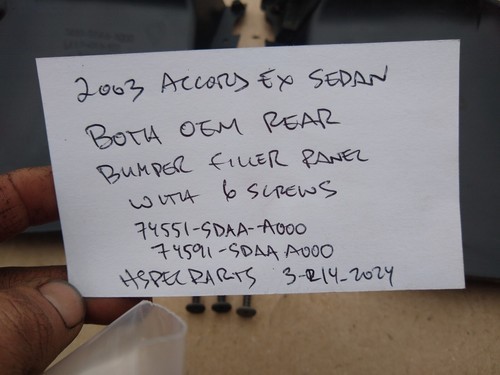 2003 ACCORD EX SEDAN
BOTH OEM REAR
BUMPER FILLER PANEL
WITH 6 SCREWS
74551-SDAA-A000
74591-SDAA A000
HSPECPARTS 3-14-2024